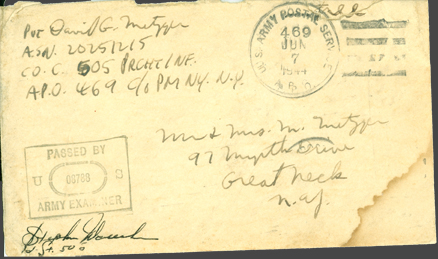 Pvt David G. Metzger
ASN. 20251215
CO. C. 505 PRCHT INF.
A.P.O. 469 c/o PM N.Y. N.Y.
Free
U.S. ARMY POSTAL SERVICE
469
JUN
7
1944
A.P.O.
Mr & Mrs. M. Metzger
97 Myrtle Drive
Great Neck
N.Y.
PASSED BY
U S
ARMY EXAMINER